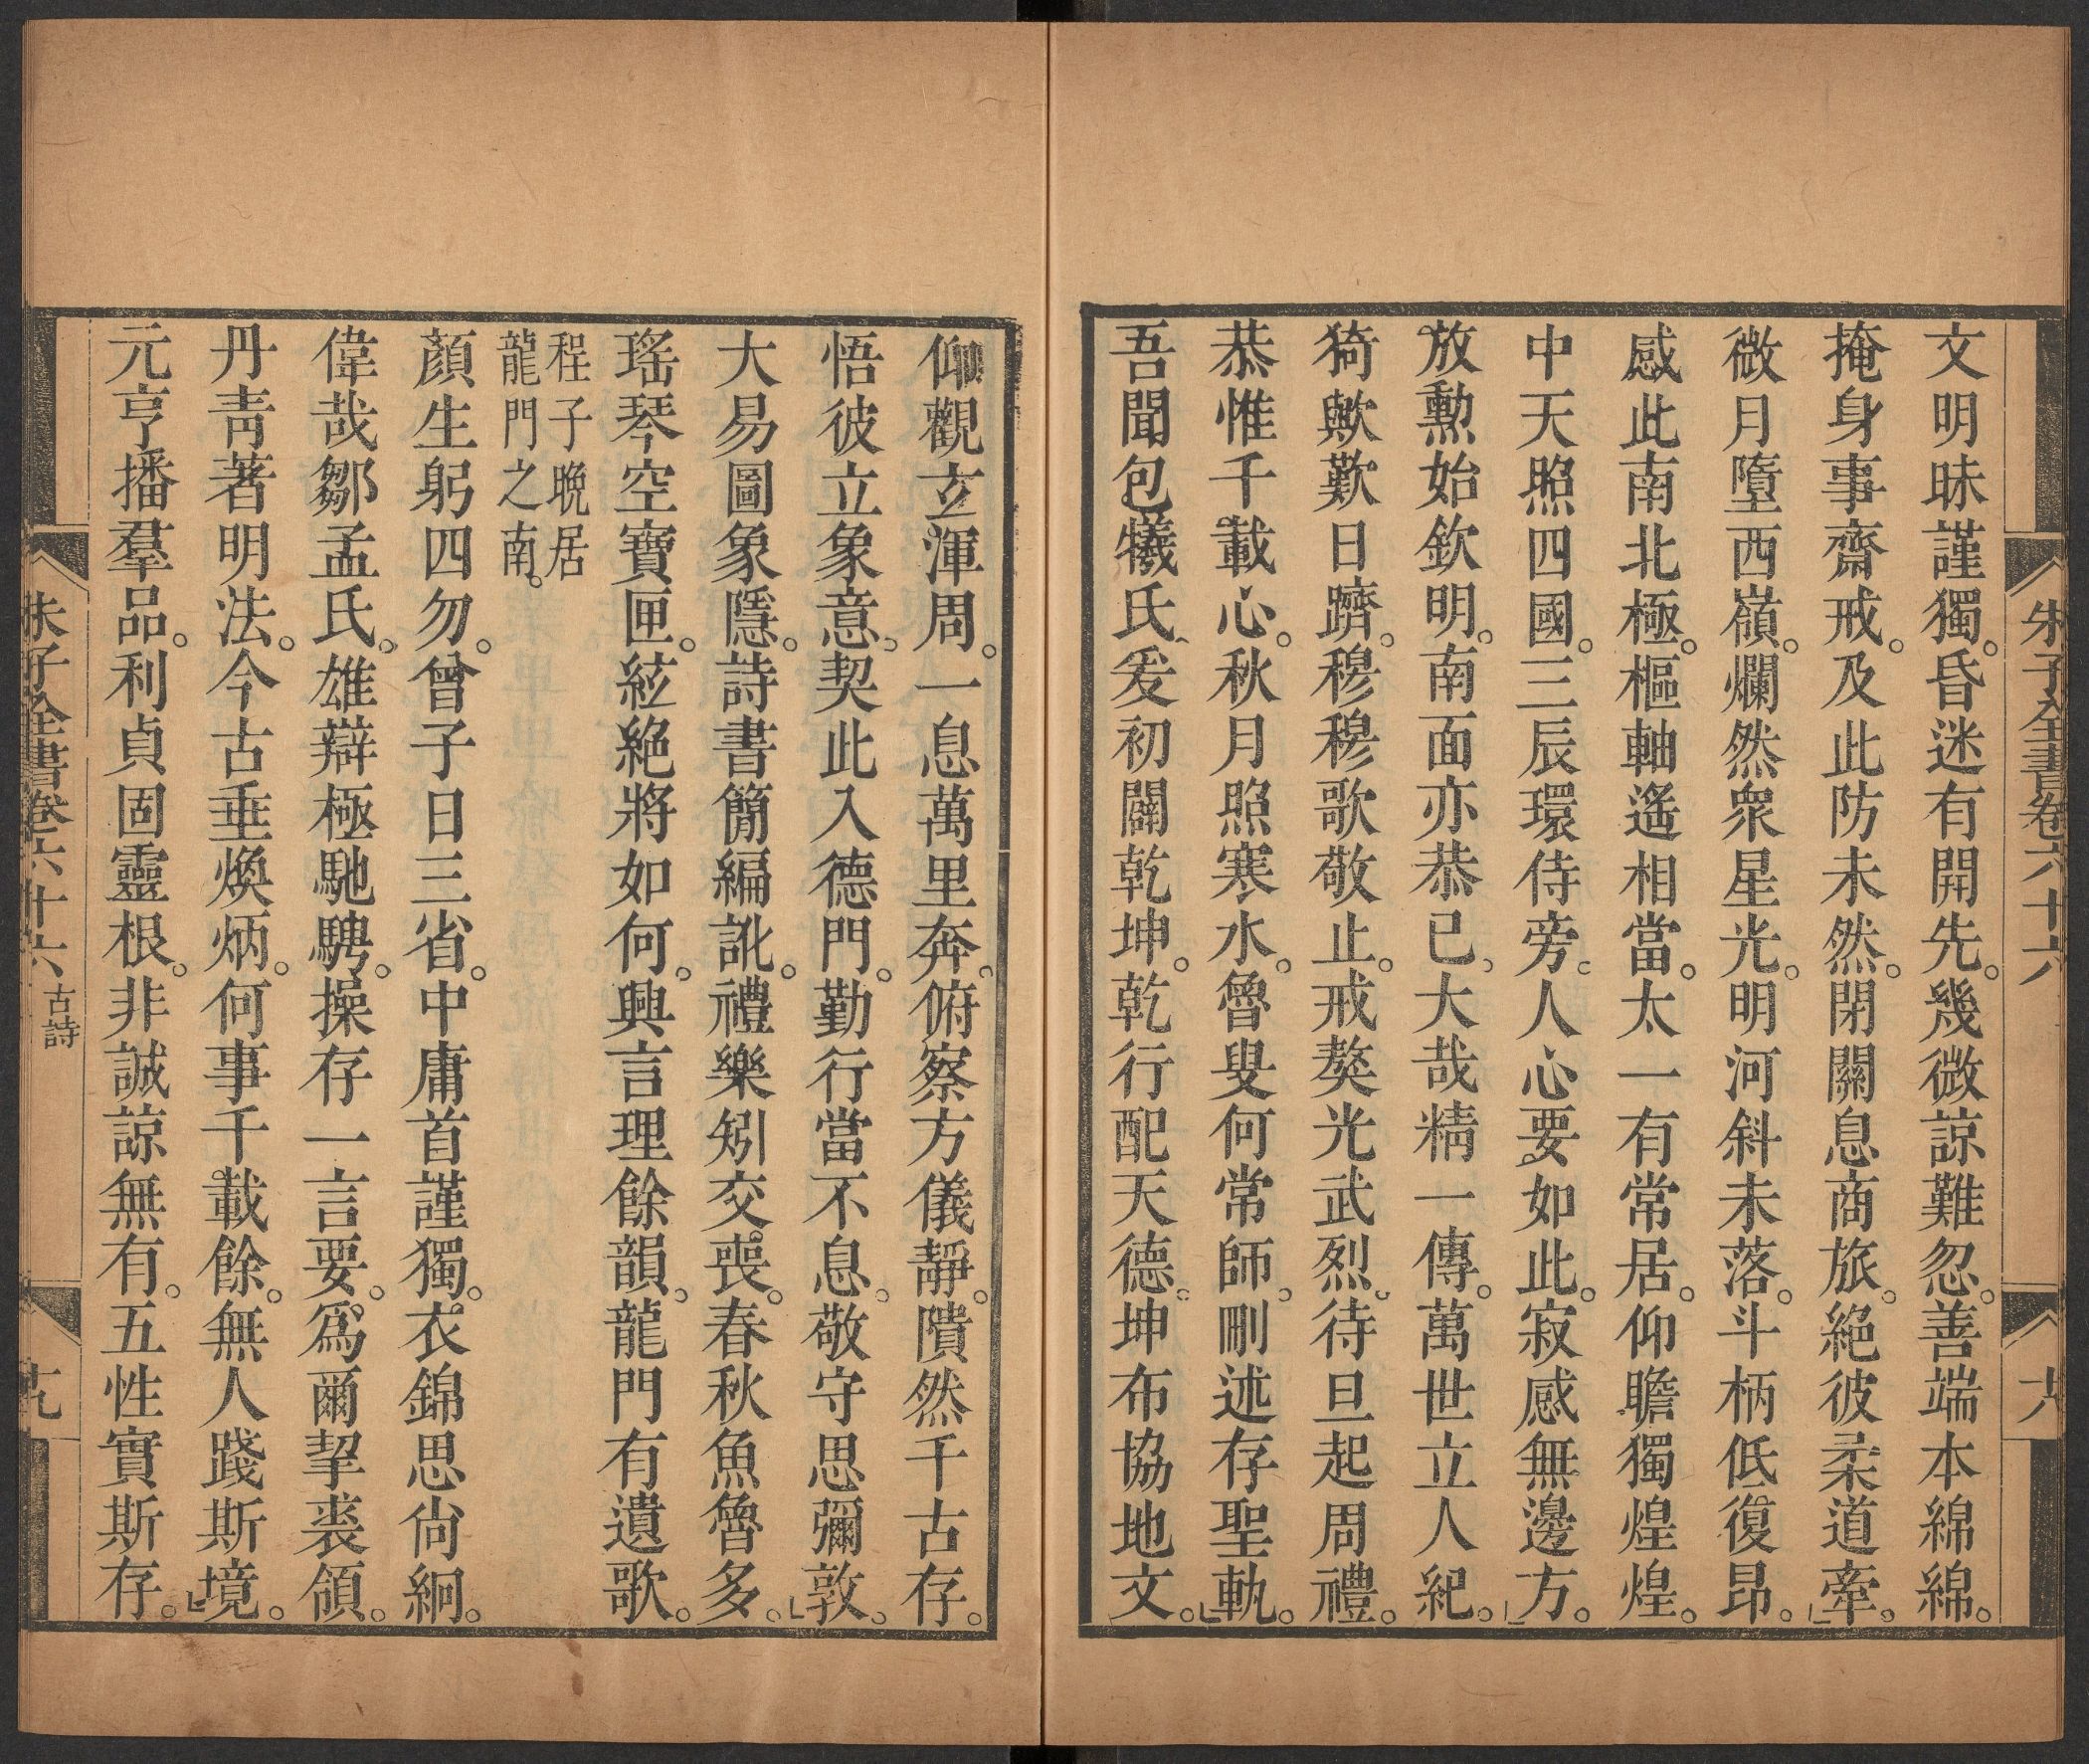 朱子全書卷六十六
十八
文明昧謹獨。昏迷有開先。幾微諒難忽。善端本綿綿。
掩身事齋戒。及此防未然。閉關息商旅。絕彼柔道牽。
微月墮西嶺。爛然衆星光。明河斜未落。斗柄低復昂。
感此南北極。樞軸遙相當。太一有常居。仰瞻獨煌煌。
中天照四國。三辰環侍旁。人心要如此。寂感無邊方。
放勲始欽明。南面亦恭己。大哉精一傳。萬世立人紀。
猗歟歎日躋。穆穆歌敬止。戒獒光武烈。待旦起周禮。
恭惟千載心。秋月照寒水。魯叟何常師。刪述存聖軌。
吾聞包犧氏、爰初闢乾坤。乾行配天德。坤布協地文。
仰觀玄渾周。一息萬里奔。俯察方儀靜。隤然千古存。
悟彼立象意。契此入德門。勤行當不息。敬守思彌敦。
大易圖象隱。詩書簡編訛。禮樂矧交喪。春秋魚魯多。
瑤琴空寶匣。絃絕將如何。興言理餘韻。龍門有遺歌。
程子晚居
龍門之南。
顏生躬四勿。曾子日三省。中庸首謹獨。衣錦思尙絅。
偉哉鄒孟氏。雄辯極馳騁。操存一言要。爲爾挈裘領。
丹靑著明法。今古垂煥炳。何事千載餘。無人踐斯境。
元亨播羣品。利貞固靈根。非誠諒無有。五性實斯存。
朱子全書卷六十六
古詩
十九